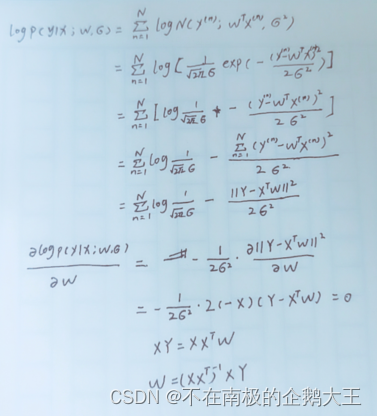 log P(Y|X; W, σ) = Σ_{n=1}^{N} log N(Y^{(n)}; W^T X^{(n)}, σ²)
= Σ_{n=1}^{N} log [ 1/(√2π σ) exp(- (Y^{(n)} - W^T X^{(n)})²/(2σ²)) ]
= Σ_{n=1}^{N} [ log 1/(√2π σ) - (Y^{(n)} - W^T X^{(n)})²/(2σ²) ]
= Σ_{n=1}^{N} log 1/(√2π σ) - Σ_{n=1}^{N} (Y^{(n)} - W^T X^{(n)})²/(2σ²)
= Σ_{n=1}^{N} log 1/(√2π σ) - ||Y - X^T W||²/(2σ²)
∂log P(Y|X; W, σ)/∂W = - 1/(2σ²) · ∂||Y - X^T W||²/∂W
= - 1/(2σ²) · 2(-X)(Y - X^T W) = 0
XY = XX^T W
W = (XX^T)^{-1} XY
CSDN @不在南极的企鹅大王